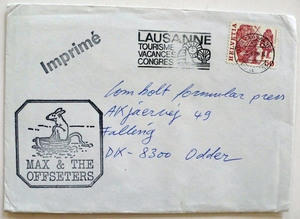 Imprimé
LAUSANNE
TOURISME
VACANCES
CONGRES
HELVETIA
50
Lomholt formular press
AKjaervej 49
Falling
DK-8300 Odder
MAX & THE
OFFSETERS